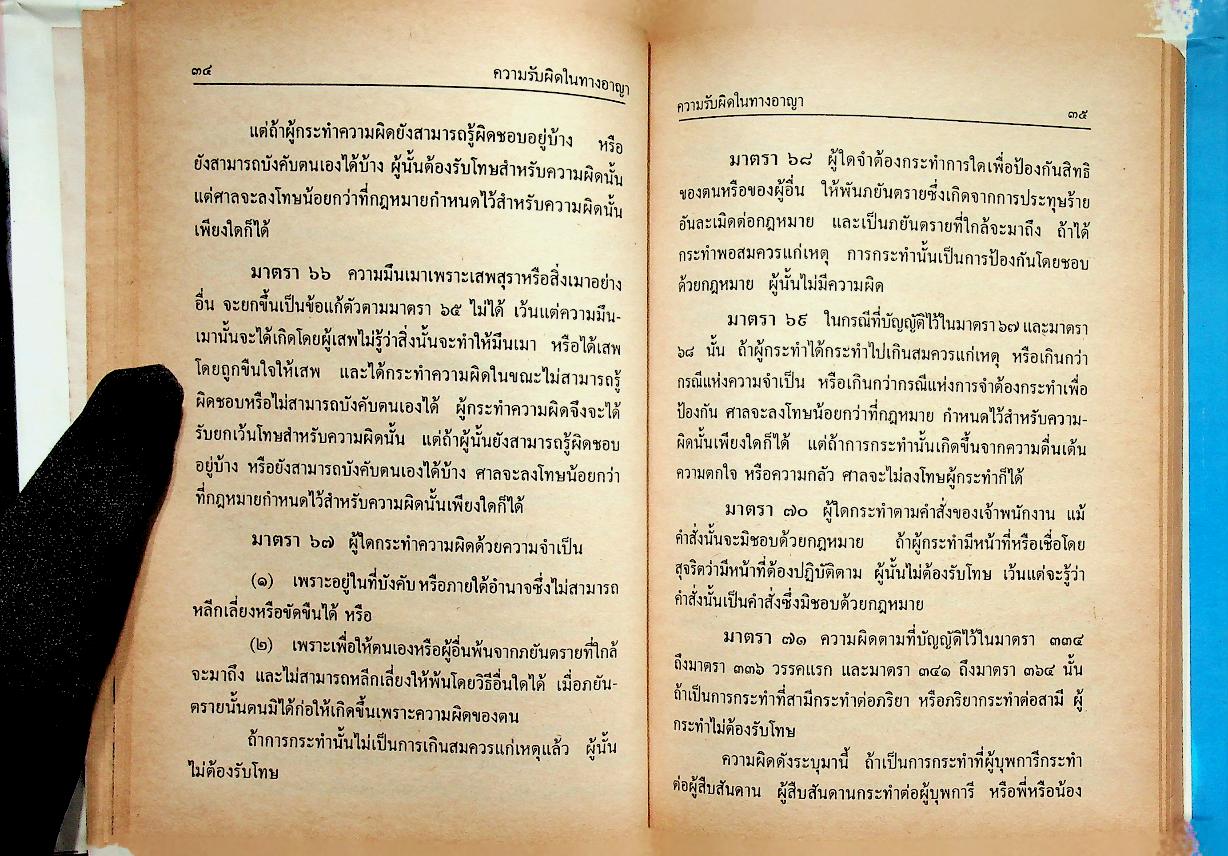 ๓๔
ความรับผิดในทางอาญา
แต่ถ้าผู้กระทำความผิดยังสามารถรู้ผิดชอบอยู่บ้าง หรือ
ยังสามารถบังคับตนเองได้บ้าง ผู้นั้นต้องรับโทษสำหรับความผิดนั้น
แต่ศาลจะลงโทษน้อยกว่าที่กฎหมายกำหนดไว้สำหรับความผิดนั้น
เพียงใดก็ได้
มาตรา ๖๖ ความมึนเมาเพราะเสพสุราหรือสิ่งเมาอย่าง
อื่น จะยกขึ้นเป็นข้อแก้ตัวตามมาตรา ๖๕ ไม่ได้ เว้นแต่ความมึน-
เมานั้นจะได้เกิดโดยผู้เสพไม่รู้ว่าสิ่งนั้นจะทำให้มึนเมา หรือได้เสพ
โดยถูกขืนใจให้เสพ และได้กระทำความผิดในขณะไม่สามารถรู้
ผิดชอบหรือไม่สามารถบังคับตนเองได้ ผู้กระทำความผิดจึงจะได้
รับยกเว้นโทษสำหรับความผิดนั้น แต่ถ้าผู้นั้นยังสามารถรู้ผิดชอบ
อยู่บ้าง หรือยังสามารถบังคับตนเองได้บ้าง ศาลจะลงโทษน้อยกว่า
ที่กฎหมายกำหนดไว้สำหรับความผิดนั้นเพียงใดก็ได้
มาตรา ๖๗ ผู้ใดกระทำความผิดด้วยความจำเป็น
(๑) เพราะอยู่ในที่บังคับ หรือภายใต้อำนาจซึ่งไม่สามารถ
หลีกเลี่ยงหรือขัดขืนได้ หรือ
(๒) เพราะเพื่อให้ตนเองหรือผู้อื่นพ้นจากภยันตรายที่ใกล้
จะมาถึง และไม่สามารถหลีกเลี่ยงให้พ้นโดยวิธีอื่นใดได้ เมื่อภยัน-
ตรายนั้นตนมิได้ก่อให้เกิดขึ้นเพราะความผิดของตน
ถ้าการกระทำนั้นไม่เป็นการเกินสมควรแก่เหตุแล้ว ผู้นั้น
ไม่ต้องรับโทษ
ความรับผิดในทางอาญา
๓๕
มาตรา ๖๘ ผู้ใดจำต้องกระทำการใดเพื่อป้องกันสิทธิ
ของตนหรือของผู้อื่น ให้พันภยันตรายซึ่งเกิดจากการประทุษร้าย
อันละเมิดต่อกฎหมาย และเป็นภยันตรายที่ใกล้จะมาถึง ถ้าได้
กระทำพอสมควรแก่เหตุ การกระทำนั้นเป็นการป้องกันโดยชอบ
ด้วยกฎหมาย ผู้นั้นไม่มีความผิด
มาตรา ๖๙ ในกรณีที่บัญญัติไว้ในมาตรา ๖๗ และมาตรา
๖๘ นั้น ถ้าผู้กระทำได้กระทำไปเกินสมควรแก่เหตุ หรือเกินกว่า
กรณีแห่งความจำเป็น หรือเกินกว่ากรณีแห่งการจำต้องกระทำเพื่อ
ป้องกัน ศาลจะลงโทษน้อยกว่าที่กฎหมาย กำหนดไว้สำหรับความ-
ผิดนั้นเพียงใดก็ได้ แต่ถ้าการกระทำนั้นเกิดขึ้นจากความตื่นเต้น
ความตกใจ หรือความกลัว ศาลจะไม่ลงโทษผู้กระทำก็ได้
มาตรา ๗๐ ผู้ใดกระทำตามคำสั่งของเจ้าพนักงาน แม้
คำสั่งนั้นจะมิชอบด้วยกฎหมาย ถ้าผู้กระทำมีหน้าที่หรือเชื่อโดย
สุจริตว่ามีหน้าที่ต้องปฏิบัติตาม ผู้นั้นไม่ต้องรับโทษ เว้นแต่จะรู้ว่า
คำสั่งนั้นเป็นคำสั่งซึ่งมิชอบด้วยกฎหมาย
มาตรา ๗๑ ความผิดตามที่บัญญัติไว้ในมาตรา ๓๓๔
ถึงมาตรา ๓๓๖ วรรคแรก และมาตรา ๓๔๑ ถึงมาตรา ๓๖๔ นั้น
ถ้าเป็นการกระทำที่สามีกระทำต่อภริยา หรือภริยากระทำต่อสามี ผู้
กระทำไม่ต้องรับโทษ
ความผิดดังระบุมานี้ ถ้าเป็นการกระทำที่ผู้บุพการีกระทำ
ต่อผู้สืบสันดาน ผู้สืบสันดานกระทำต่อผู้บุพการี หรือพี่หรือน้อง